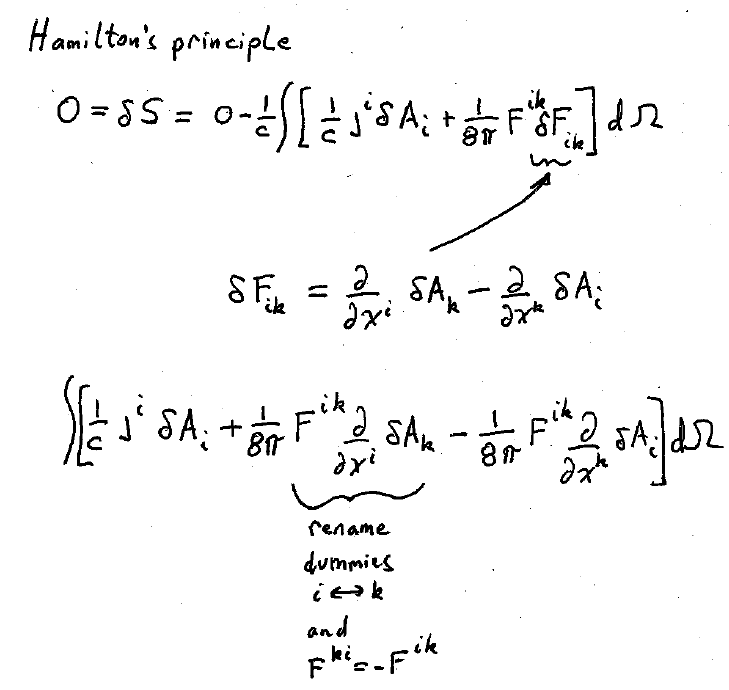 Hamilton's principle
0 = δS = 0 - 1/c ∫ [ 1/c j^i δA_i + 1/8π F^{ik} δF_{ik} ] dΩ
δF_{ik} = ∂/∂x^i δA_k - ∂/∂x^k δA_i
∫ [ 1/c j^i δA_i + 1/8π F^{ik} ∂/∂x^i δA_k - 1/8π F^{ik} ∂/∂x^k δA_i ] dΩ
rename
dummies
i ↔ k
and
F^{ki} = -F^{ik}